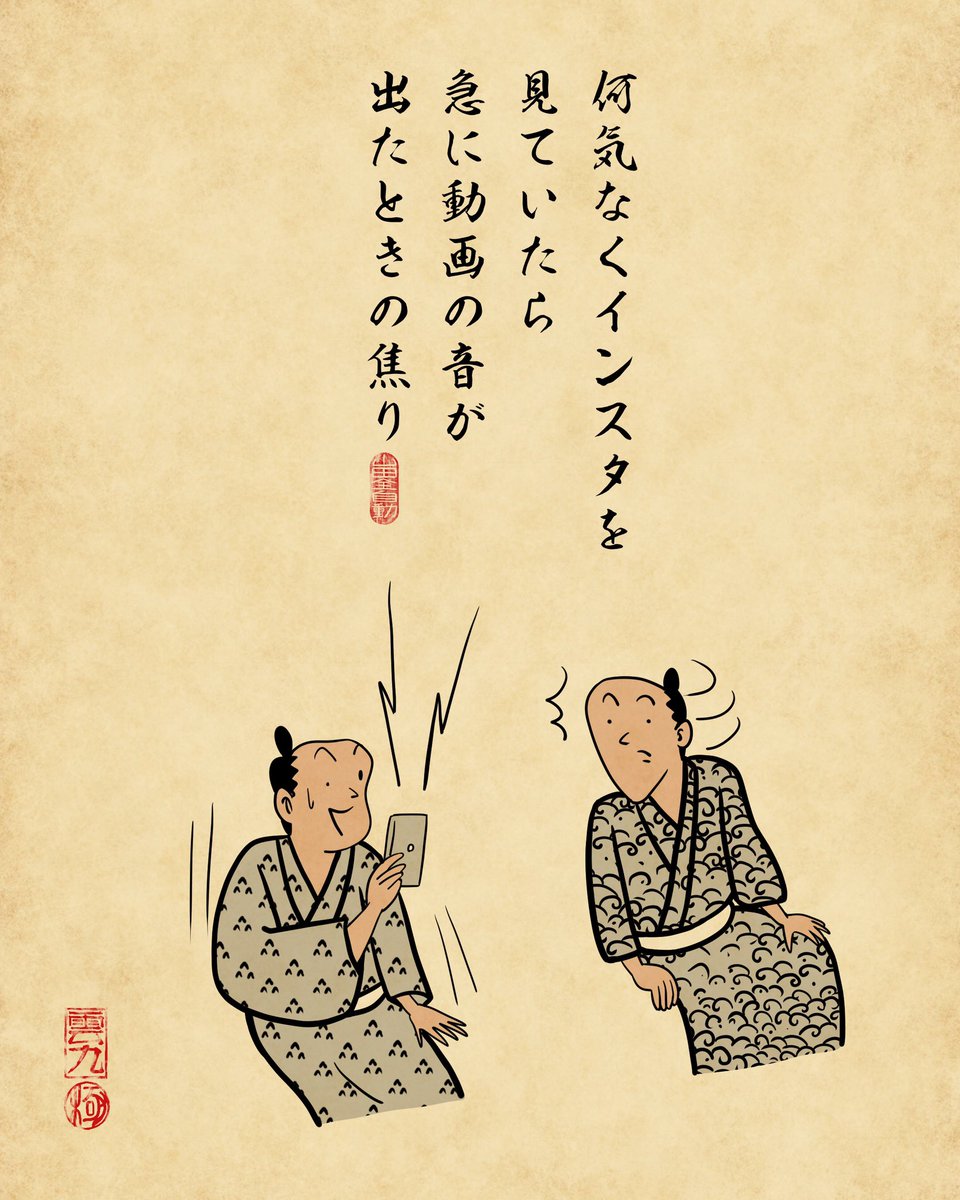 何気なくインスタを
見ていたら
急に動画の音が
出たときの焦り